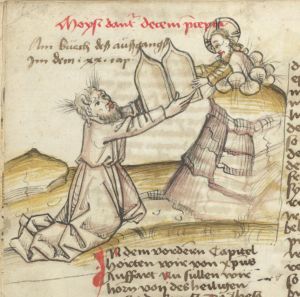 Moysi dant᷑ decem p̄cepta
Am bůch des außgangs
Im dem · xx · cap̄
In dem vordern Capitel
horten wir von xpus
auffart Nu sullen wir
horn von des heiligen